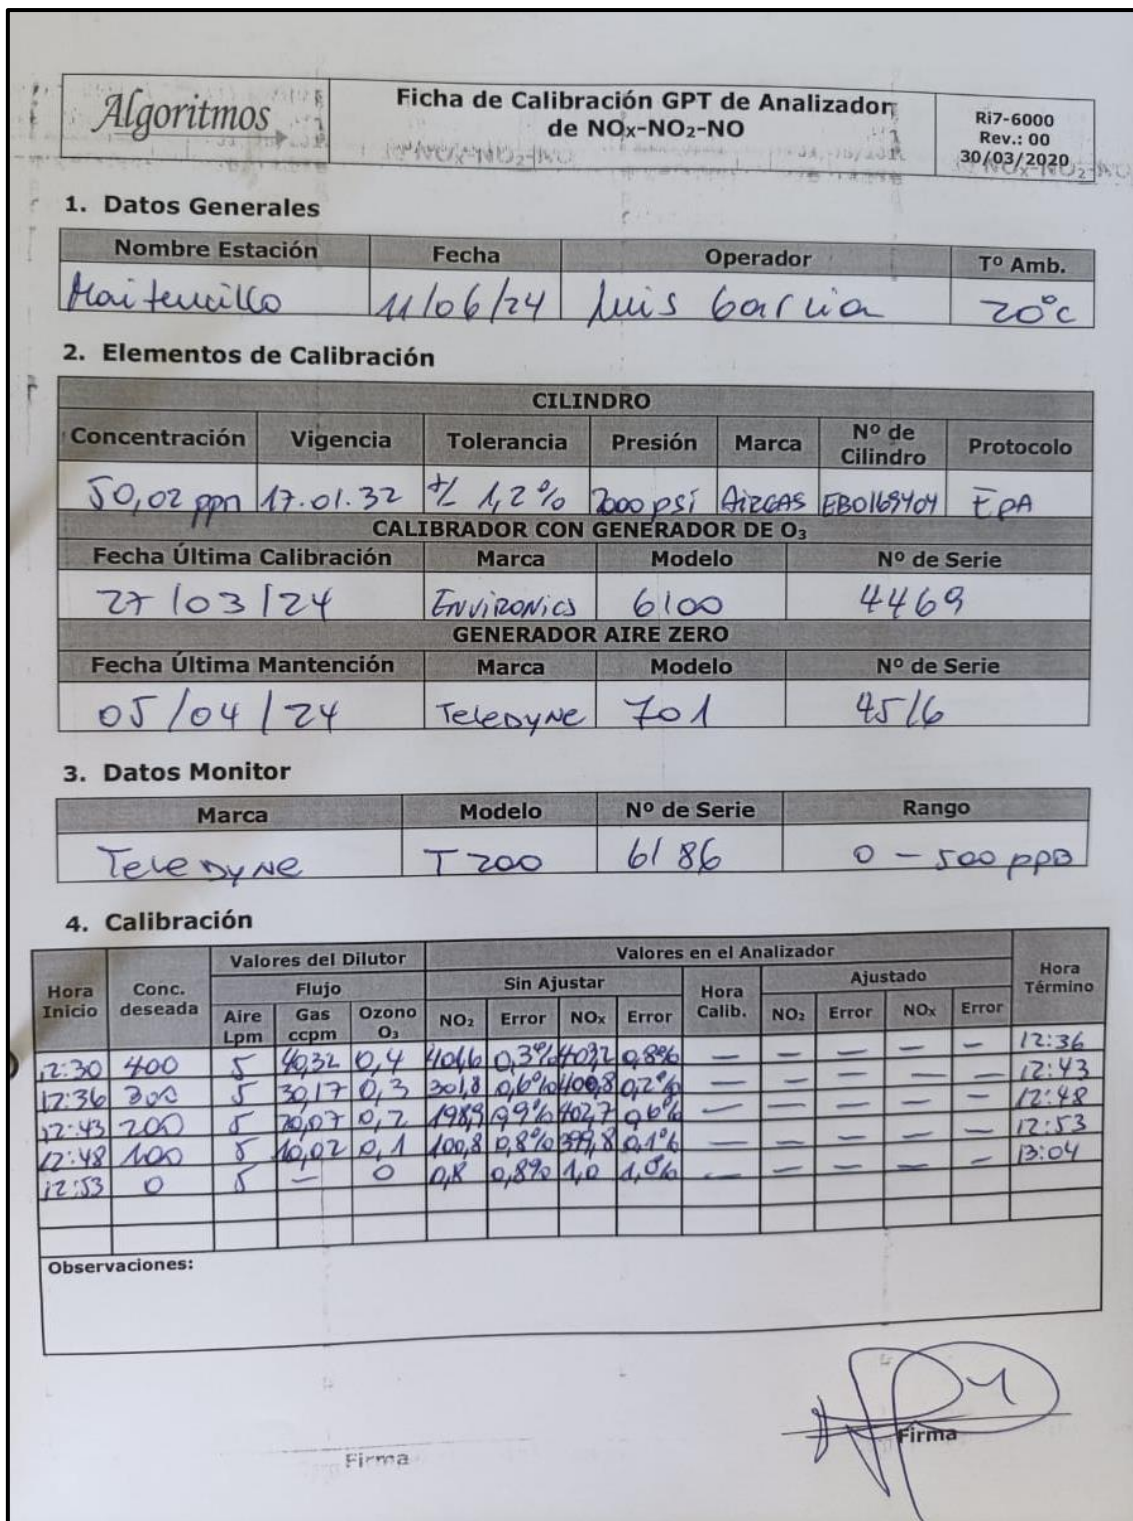 Algoritmos
Ficha de Calibración GPT de Analizador
de NOx-NO2-NO
Ri7-6000
Rev.: 00
30/03/2020
1. Datos Generales
Nombre Estación Fecha Operador Tº Amb.
Maitencillo 11/06/24 Luis Garcia 20°c
2. Elementos de Calibración
CILINDRO
Concentración Vigencia Tolerancia Presión Marca Nº de Cilindro Protocolo
50,02 ppm 17.01.32 +/- 1,2% 2000 psi AIRGAS EB0169404 EPA
CALIBRADOR CON GENERADOR DE O3
Fecha Última Calibración Marca Modelo Nº de Serie
27/03/24 Environics 6100 4469
GENERADOR AIRE ZERO
Fecha Última Mantención Marca Modelo Nº de Serie
05/04/24 Teledyne 701 4516
3. Datos Monitor
Marca Modelo Nº de Serie Rango
Teledyne T200 6186 0 - 500 ppB
4. Calibración
Hora Inicio Conc. deseada Valores del Dilutor Valores en el Analizador Hora Término
Flujo Sin Ajustar Hora Calib. Ajustado
Aire Lpm Gas ccpm Ozono O3 NO2 Error NOx Error NO2 Error NOx Error
12:30 400 5 40,32 0,4 401,6 0,3% 403,2 0,8% — — — — — 12:36
12:36 300 5 30,17 0,3 301,8 0,6% 400,8 0,2% — — — — — 12:43
12:43 200 5 20,07 0,2 198,9 0,9% 402,7 0,6% — — — — — 12:48
12:48 100 5 10,02 0,1 100,8 0,8% 399,8 0,1% — — — — — 12:53
12:53 0 5 — 0 0,8 0,8% 1,0 1,0% — — — — — 13:04
Observaciones:
Firma
Firma